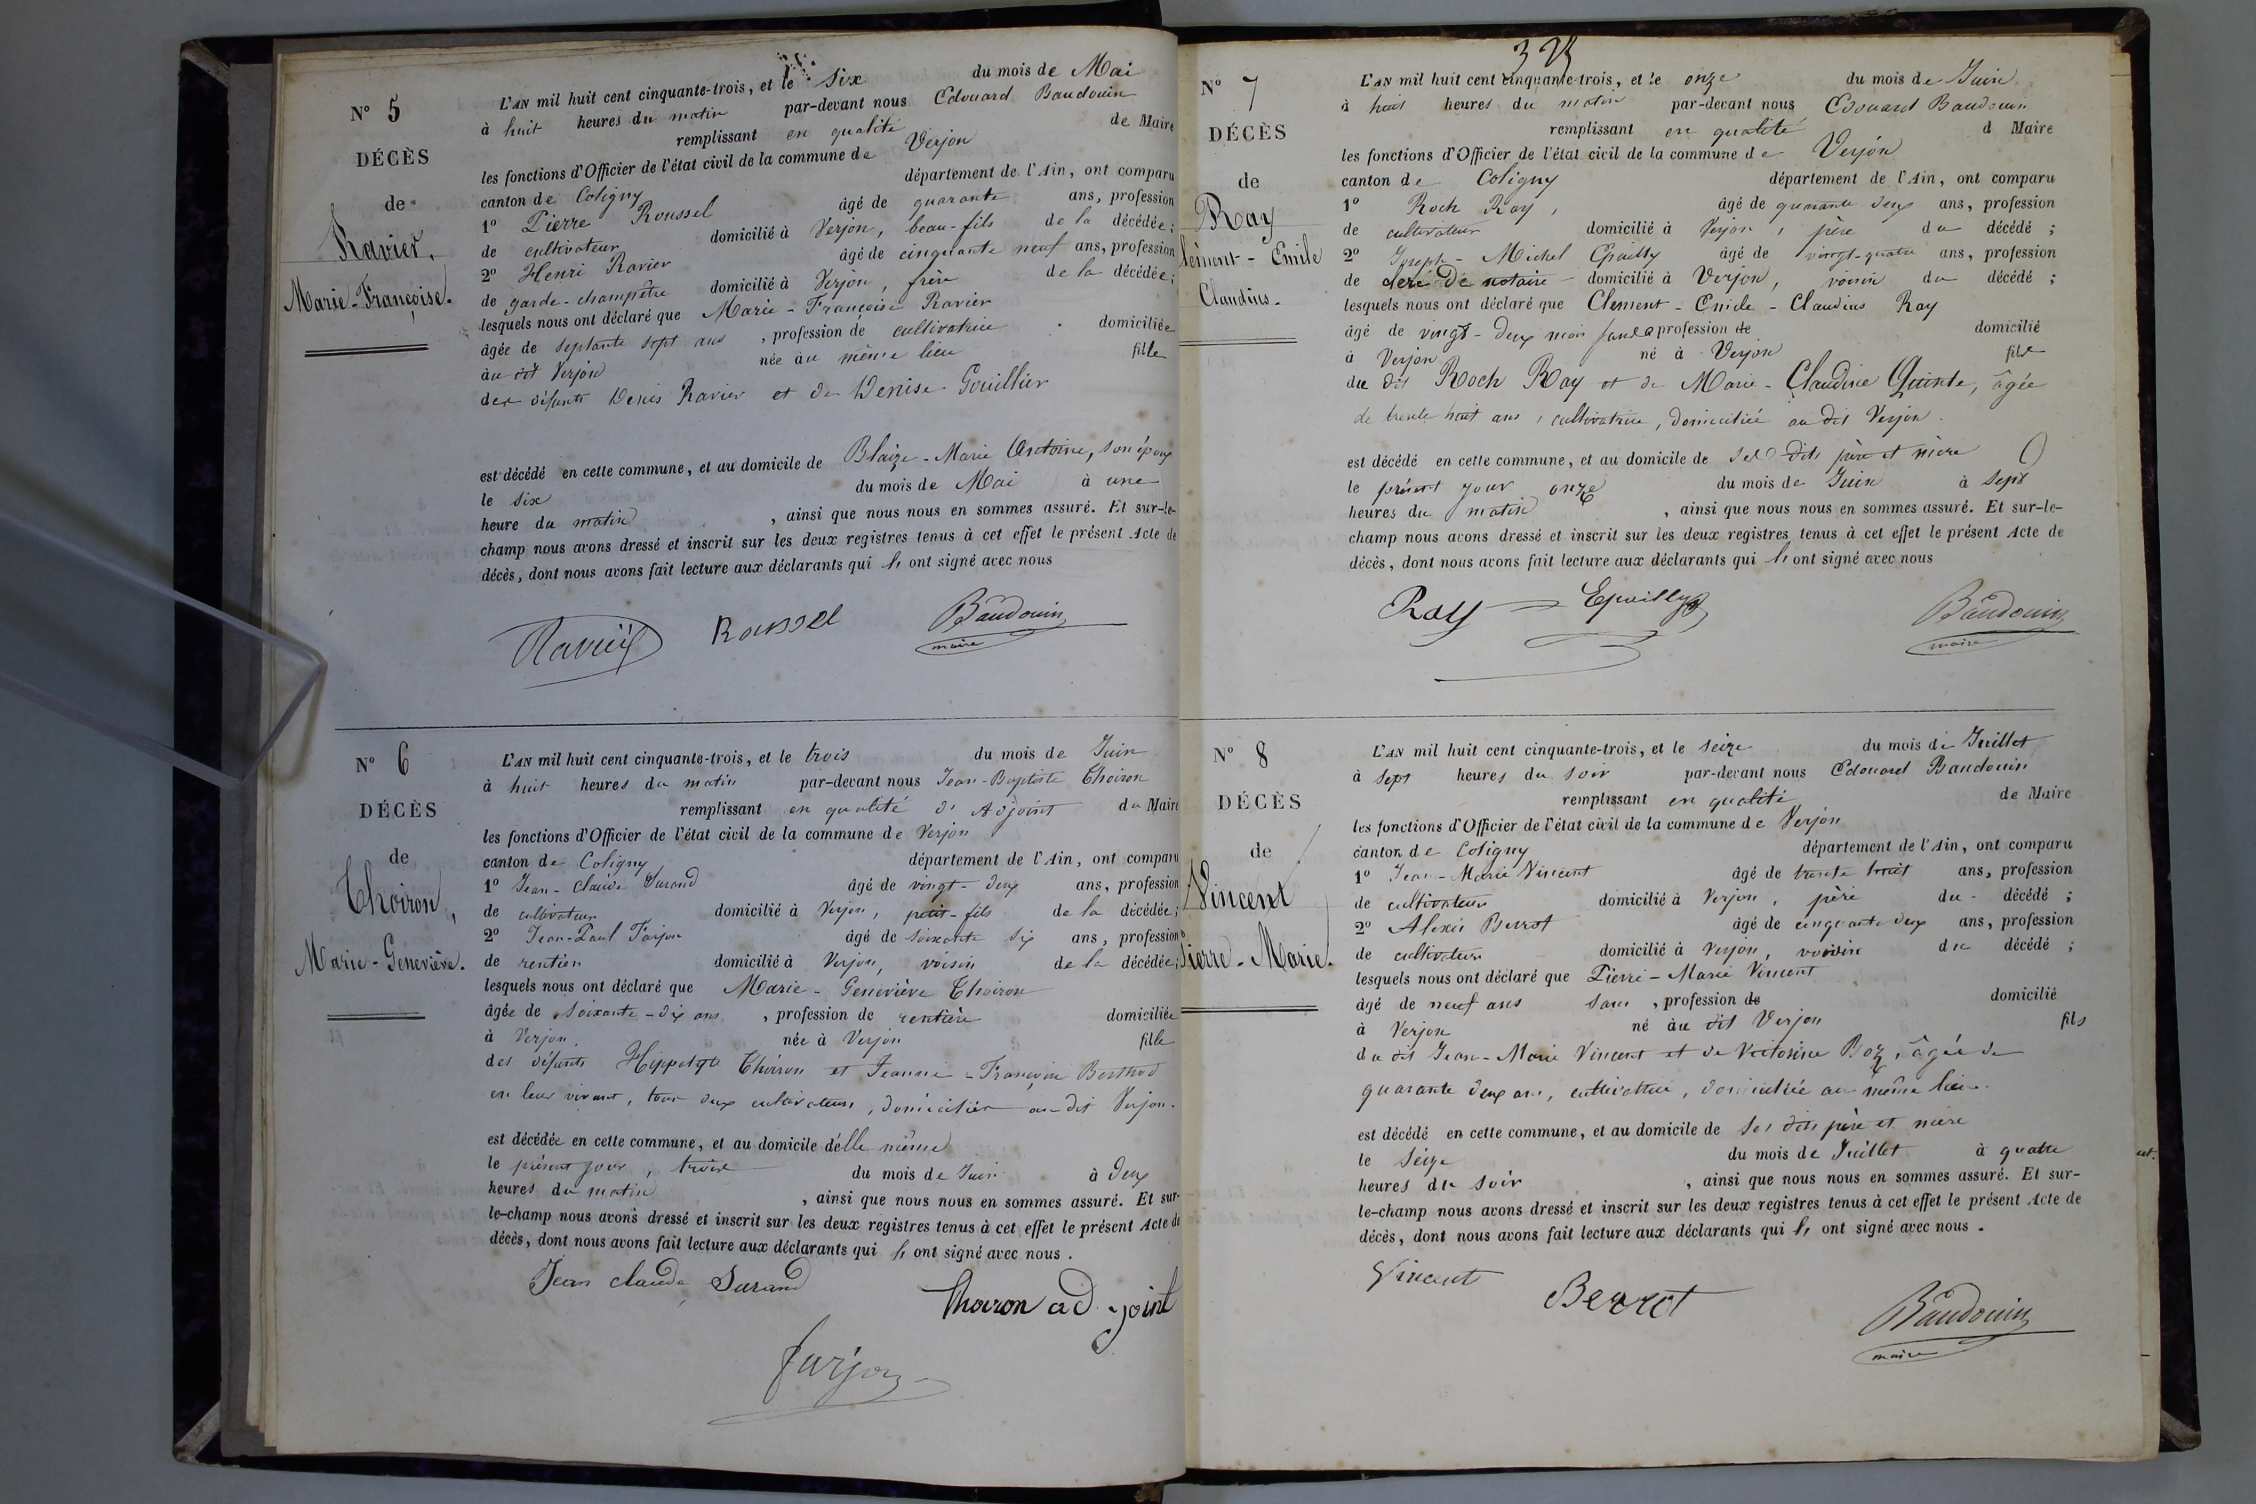 N° 5
DÉCÈS
de
Ravier.
Marie-Françoise.
L'AN mil huit cent cinquante-trois, et le six du mois de Mai
à huit heures du matin par-devant nous Edouard Baudouin
remplissant en qualité de Maire
les fonctions d'Officier de l'état civil de la commune de Verjon
canton de Coligny département de l'Ain, ont comparu
1° Pierre Roussel âgé de quarante ans, profession
de cultivateur domicilié à Verjon, beau-fils de la décédée;
2° Henri Ravier âgé de cinquante neuf ans, profession
de garde-champêtre domicilié à Verjon, frère de la décédée;
lesquels nous ont déclaré que Marie-Françoise Ravier
âgée de septante sept ans, profession de cultivatrice domiciliée
au dit Verjon née au même lieu fille
des défunts Denis Ravier et de Denise Gouillier
est décédé en cette commune, et au domicile de Blaize-Marie Antoine, son époux
le six du mois de Mai à une
heure du matin, ainsi que nous nous en sommes assuré. Et sur-le-
champ nous avons dressé et inscrit sur les deux registres tenus à cet effet le présent Acte de
décès, dont nous avons fait lecture aux déclarants qui ont signé avec nous
Ravier Roussel Baudouin
maire
N° 6
DÉCÈS
de
Thoiron,
Marie-Geneviève.
L'AN mil huit cent cinquante-trois, et le trois du mois de Juin
à huit heures du matin par-devant nous Jean-Baptiste Thoiron
remplissant en qualité d'Adjoint du Maire
les fonctions d'Officier de l'état civil de la commune de Verjon
canton de Coligny département de l'Ain, ont comparu
1° Jean-Claude Durand âgé de vingt-deux ans, profession
de cultivateur domicilié à Verjon, petit-fils de la décédée;
2° Jean-Paul Farjon âgé de soixante six ans, profession
de rentier domicilié à Verjon, voisin de la décédée;
lesquels nous ont déclaré que Marie-Geneviève Thoiron
âgée de soixante-dix ans, profession de rentière domiciliée
à Verjon née à Verjon fille
des défunts Hippolyte Thoiron et Jeanne-Françoise Berthod
en leur vivant, tous deux cultivateurs, domiciliés au dit Verjon.
est décédée en cette commune, et au domicile d'elle même
le présent jour, trois du mois de Juin à deux
heures du matin, ainsi que nous nous en sommes assuré. Et sur-
le-champ nous avons dressé et inscrit sur les deux registres tenus à cet effet le présent Acte de
décès, dont nous avons fait lecture aux déclarants qui ont signé avec nous.
Jean claude Durand Thoiron adjoint
farjon
N° 7
DÉCÈS
de
Ray
Clément-Emile
Claudius-
L'AN mil huit cent cinquante-trois, et le onze du mois de Juin
à huit heures du matin par-devant nous Edouard Baudouin
remplissant en qualité d Maire
les fonctions d'Officier de l'état civil de la commune de Verjon
canton de Coligny département de l'Ain, ont comparu
1° Roch Ray, âgé de quarante deux ans, profession
de cultivateur domicilié à Verjon, père du décédé;
2° Joseph-Michel Epailly âgé de vingt-quatre ans, profession
de clerc de notaire domicilié à Verjon, voisin du décédé;
lesquels nous ont déclaré que Clément-Emile-Claudius Ray
âgé de vingt-deux mois sans profession de domicilié
à Verjon né à Verjon fils
du dit Roch Ray et de Marie-Claudine Quinte, âgée
de trente huit ans, cultivatrice, domiciliée au dit Verjon.
est décédé en cette commune, et au domicile de ses dits père et mère
le présent jour onze du mois de Juin à sept
heures du matin, ainsi que nous nous en sommes assuré. Et sur-le-
champ nous avons dressé et inscrit sur les deux registres tenus à cet effet le présent Acte de
décès, dont nous avons fait lecture aux déclarants qui ont signé avec nous
Ray Epailly Baudouin
maire
N° 8
DÉCÈS
de
Vincent
Pierre-Marie.
L'AN mil huit cent cinquante-trois, et le seize du mois de Juillet
à sept heures du soir par-devant nous Edouard Baudouin
remplissant en qualité de Maire
les fonctions d'Officier de l'état civil de la commune de Verjon
canton de Coligny département de l'Ain, ont comparu
1° Jean-Marie Vincent âgé de trente huit ans, profession
de cultivateur domicilié à Verjon, père du décédé;
2° Alexis Berrot âgé de cinquante deux ans, profession
de cultivateur domicilié à Verjon, voisin du décédé;
lesquels nous ont déclaré que Pierre-Marie Vincent
âgé de neuf ans sans, profession de domicilié
à Verjon né au dit Verjon fils
du dit Jean-Marie Vincent et de Victorine Boz, âgée de
quarante deux ans, cultivatrice, domiciliée au même lieu.
est décédé en cette commune, et au domicile de ses dits père et mère
le seize du mois de Juillet à quatre
heures du soir, ainsi que nous nous en sommes assuré. Et sur-
le-champ nous avons dressé et inscrit sur les deux registres tenus à cet effet le présent Acte de
décès, dont nous avons fait lecture aux déclarants qui ont signé avec nous.
Vincent Berrot Baudouin
maire